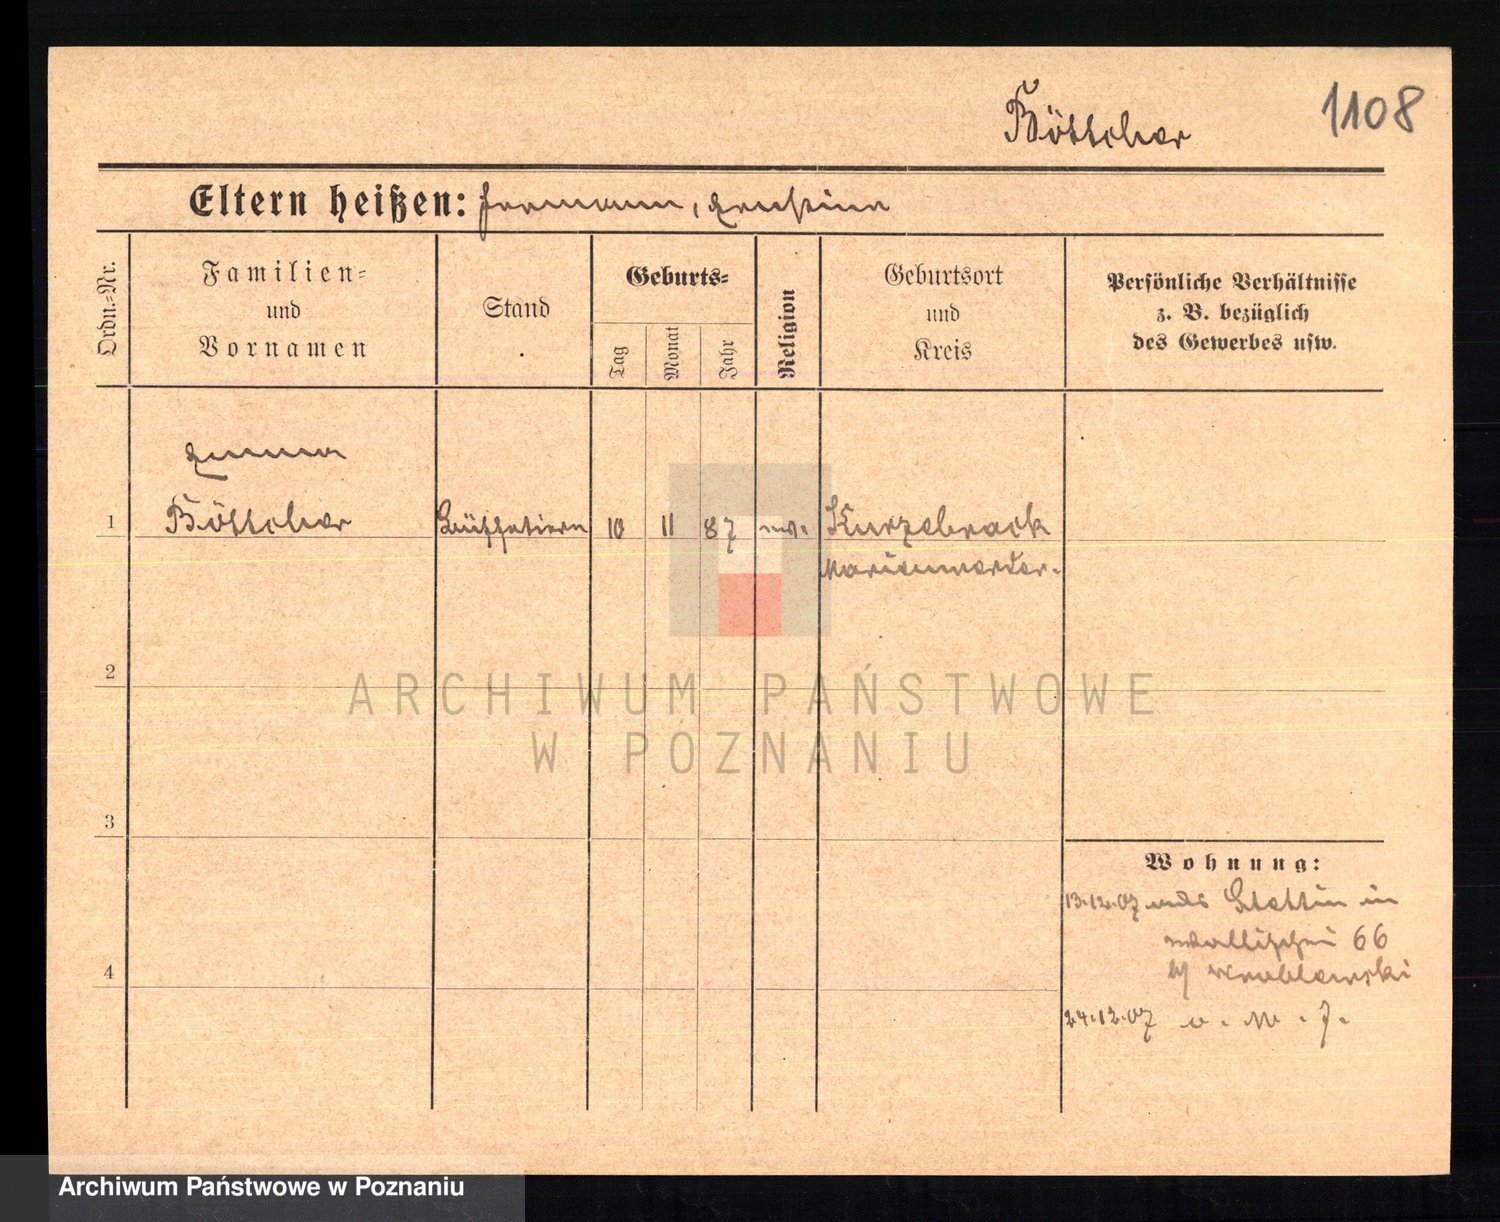 Böttcher
1108
Eltern heißen: Hermann, Ernstine
Ordn.=Nr.
Familien=
und
Vornamen
Stand
Geburts=
Tag
Monat
Jahr
Religion
Geburtsort
und
Kreis
Persönliche Verhältnisse
z. B. bezüglich
des Gewerbes usw.
Emma
1 Böttcher Büffetiere 10 11 87 ev. Kurzebrack
Marienwerder.
2
ARCHIWUM PAŃSTWOWE
W POZNANIU
3
Wohnung:
13.12.07 aus Stettin in
Wallischei 66
b/ Wroblewski
4
24.12.07 v. W. J.
Archiwum Państwowe w Poznaniu